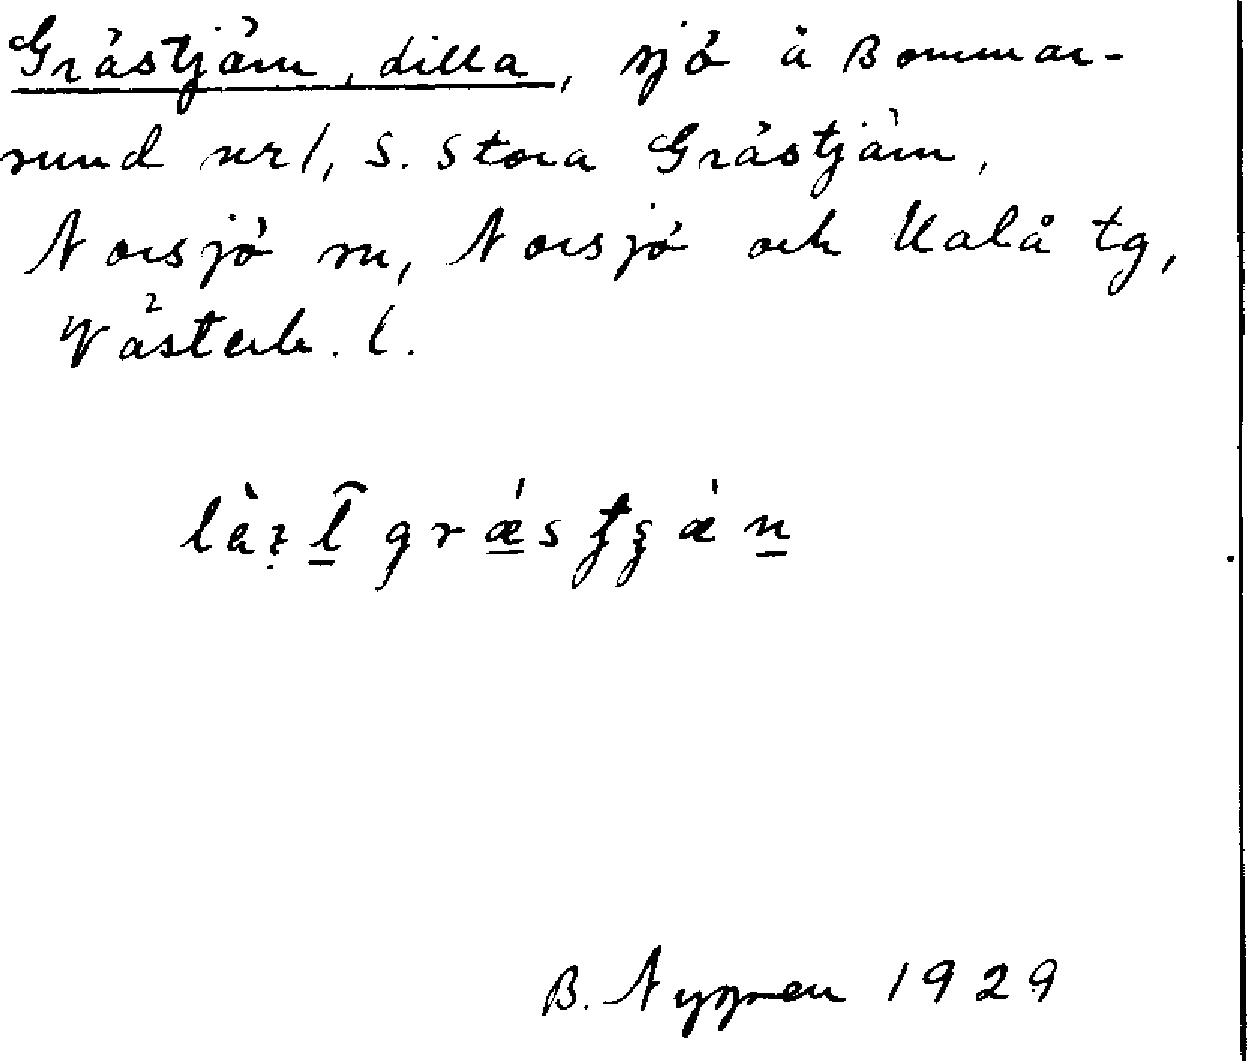 Gråstjärn, Lilla, sjö å Bommar-
sund nr 1, S. Stora Gråstjärn,
Norsjö sn, Norsjö och Malå tg,
Västerb. l.
B. Nygren 1929